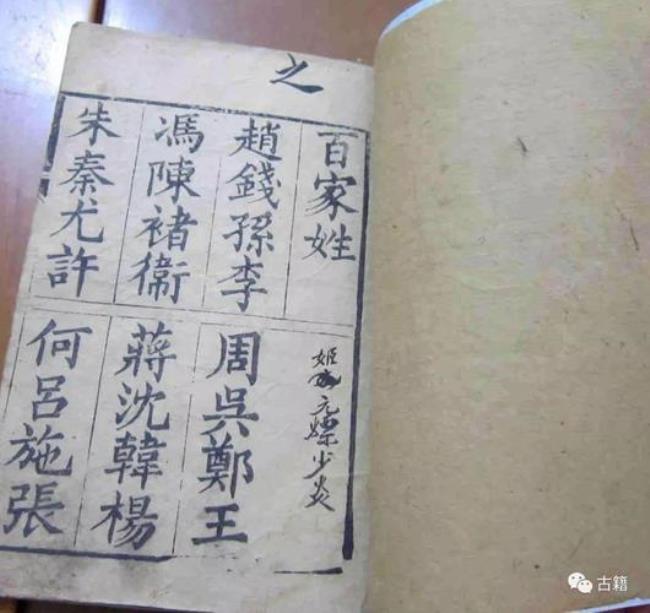 之
百家姓
趙錢孫李
周吳鄭王
馮陳褚衛
蔣沈韓楊
朱秦尤許
何呂施張
古籍